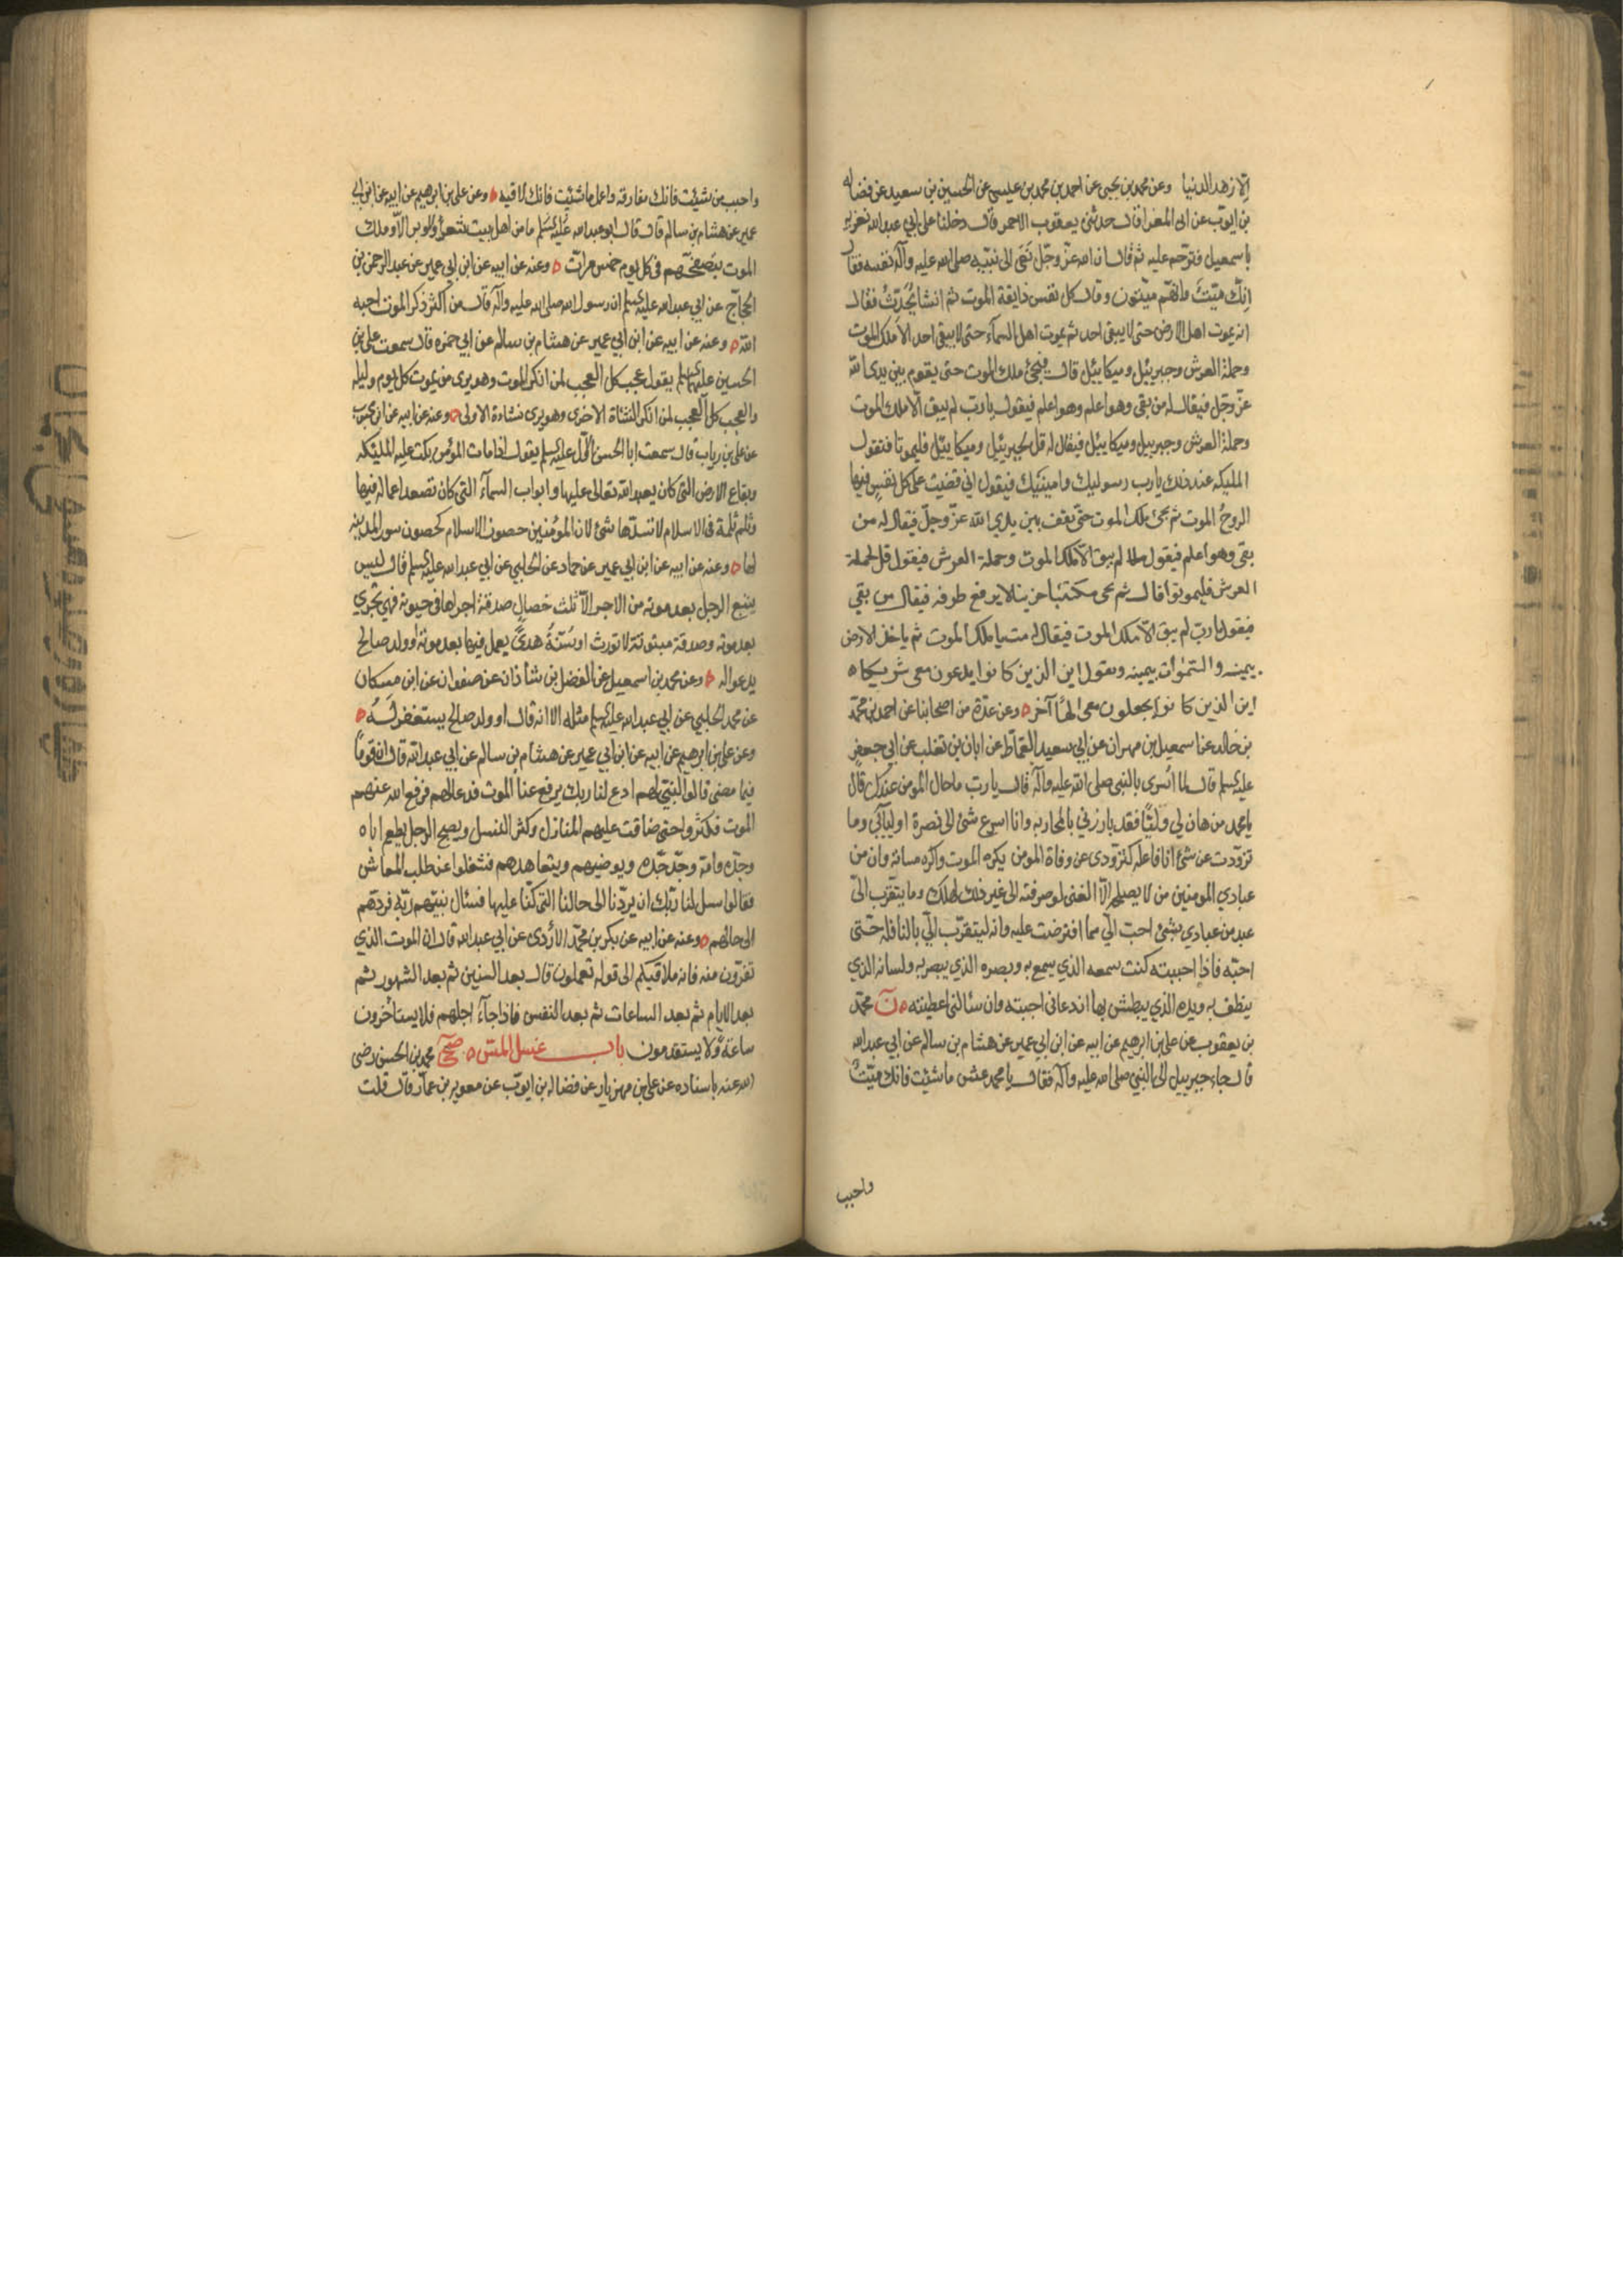 الا زهد الدنيا وعن محمد بن يحيى عن احمد بن محمد بن عيسى عن الحسين بن سعيد عن فضاله
بن ايوب عن ابى المغرا قال حدثنى يعقوب الاحمر قال دخلنا على ابي عبدالله نعزيه
باسمعيل فترحم عليه ثم قال ان الله عزّ وجلّ نعى الى نبيّه صلى الله عليه وآله نفسه فقال
انّك ميّتٌ وانّهم ميّتون وقال كل نفس ذايقة الموت ثم انشا يُحَدِّثُ فقال
انه يموت اهل الارض حتى لا يبقى احد ثم يموت اهل السمآء حتى لا يبقى احد الا ملك الموت
وحملة العرش وجبريئل وميكايئل قال فيجئ ملك الموت حتى يقوم بين يدى الله
عزّ وجلّ فيقال له من بقى وهو اعلم وهو اعلم فيقول يا ربّ لم يبق الّا ملك الموت
وحملة العرش وجبرييل وميكايئل فيقال له قل لجبريئل وميكايئل فليموتا فتقول
المليكه عند ذلك يا رب رسوليك وامينيك فيقول اني قضيت على كل نفس فيها
الروحُ الموت ثم يجئ ملك الموت حتّى يقف بين يدي الله عزّ وجلّ فيقال له من
بقى وهو اعلم فيقول لم يبق الّا ملك الموت وحملة العرش فيقول قل لحملة
العرش فليموتوا قال ثم يجى مكتئبا حزينا لا يرفع طرفه فيقال من بقى
فيقول يا ربّ لم يبق الّا ملك الموت فيقال له مت يا ملك الموت ثم ياخذ الارض
بيمينه والسّمٰوات بيمينه ويقول اين الذين كانوا يدعون معى شريكا ه
اين الذين كانوا يجعلون معى الهًا آخر ه وعن عدّة من اصحابنا عن احمد بن محمّد
بن خالد عن اسمعيل بن مهران عن ابي سعيد القماّط عن ابان بن تغلب عن ابي جعفر
عليه السلم قال لما اُسرى بالنبي صلى الله عليه وآله قال يا رب ما حال المومن عندك قال
يا محمد من هان لي وليًّا فقد بارزني بالمحاربه وانا اسرع شئ الى نصرة اوليآئي وما
تردّدت عن شئ انا فاعله كتردّدى عن وفاة المومن يكره الموت واكره مسائته وان من
عبادي المومنين من لا يصلحه الّا الغنى لو صرفته الى غير ذلك لهلك وما يتقرّب الىّ
عبد من عبادي بشئ احبّ الّي مما افترضت عليه وانه ليتقرّب الّي بالنافله حتّى
احبّه فاذا احببته كنت سمعه الذي يسمع به وبصره الذي يبصر به ولسانه الذي
ينطق به ويده الذي يبطش بها ان دعانى اجبته وان سٔالنى اعطيته ه ن محمّد
بن يعقوب عن على بن ابرهيم عن ابيه عن ابن ابي عمير عن هشام بن سالم عن ابي عبدالله
قال جاء جبرييل الى النبي صلى الله عليه وآله فقال يا محمد عش ما شئت فانك ميّتٌ
واحبب
واحبب من شئت فانك مفارقه واعمل ما شئت فانك لاقيه ه وعن على بن ابرهيم عن ابيه عن ابن ابي
عمير عن هشام بن سالم قال قال ابو عبدالله عليه السلم ما من اهل بيت شعر ولا وبر الّا وملك
الموت يتصفحّهم في كل يوم خمس مرات ه وعنه عن ابيه عن ابن ابي عمير عن عبد الرحمن بن
الحجاّج عن ابي عبدالله عليه السلم ان رسول الله صلى الله عليه وآله قال من اكثر ذكر الموت احبه
الله ه وعنه عن ابيه عن ابن ابي عمير عن هشام بن سالم عن ابي حمزه قال سمعت على بن
الحسين عليهما السلم يقول عجب كل العجب لمن انكر الموت وهو يرى من يموت كل يوم وليله
والعجب كل العجب لمن انكر النشاة الاخرى وهو يرى نشاءة الاولى ه وعنه عن ابيه عن ابن محبوب
عن على بن رياب قال سمعت ابا الحسن الاوّل عليه السلم يقول اذا مات المؤمن بكت عليه الملئكه
وبقاع الارض التى كان يعبد الله تعالى عليها وابواب السمآء التي كان تصعد اعماله فيها
وثلم ثلمة في الاسلام لا تسدّها شئ لان المؤمنين حصون الاسلام كحصون سور المدينه
لها ه وعنه عن ابيه عن ابن ابي عمير عن حماد عن الحلبي عن ابي عبدالله عليه السلم قال ليس
يتبع الرجل بعد موته من الاجر الّا ثلث خصال صدقة اجراها في حيوته فهي تجري
بعد موته وصدقة مبتوتة لا تورث او سُنّةُ هدىً يعمل فيها بعد موته او ولد صالح
يدعو اله ه وعن محمد بن اسمعيل عن الفضل بن شاذان عن صفوان عن ابن مسكان
عن محمد الحلبي عن ابي عبدالله عليه السلم مثله الا انه قال او ولد صالح يستغفر لَهُ ه
وعن على بن ابرهيم عن ابيه عن ابن ابي عمير عن هشام بن سالم عن ابي عبدالله قال ان قومًا
فيما مضى قالوا لنبيّ لهم ادع لنا ربك يرفع عنا الموت فدعا لهم فرفع الله عنهم
الموت فكثروا حتى ضاقت عليهم المنازل وكثر النسل ويصبح الرجل يطعم اباه
وجدّه وامّه وجدّ جدّه ويوضيهم ويتعاهدهم فشغلوا عن طلب المعاش
فقالوا سل لنا ربّك ان يردّنا الى حالنا التى كنّا عليها فسئال نبيّهم ربّه فردّهم
الى حالهم ه وعنه عن ابيه عن بكر بن محمّد الازدى عن ابي عبدالله قال ان الموت الذي
تفرّون منه فانه ملاقيكم الى قوله تعملون قال بعد السنين ثم بعد الشهور ثم
بعد الايام ثم بعد الساعات ثم بعد النفس فاذا جآء اجلهم فلا يستأخرون
ساعةً ولا يستقدمون باب غسل المسّ ه صح محمد بن الحسن رضى
الله عنه باسناده عن على بن مهزيار عن فضاله بن ايوّب عن معويه بن عمّار قال قلت